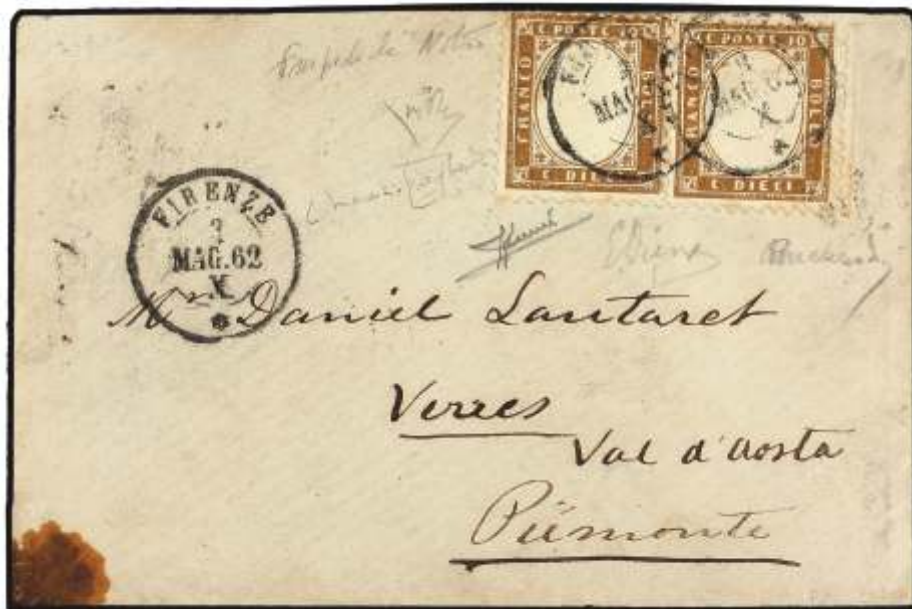 C. POSTE 10
FRANCO
BOLLO
C. DIECI
MAG
C. POSTE 10
FRANCO
BOLLO
C. DIECI
MAG. 62
X
FIRENZE
MAG. 62
X
EDiena
Mr Daniel Lantaret
Verres
Val d'Aosta
Piémonte